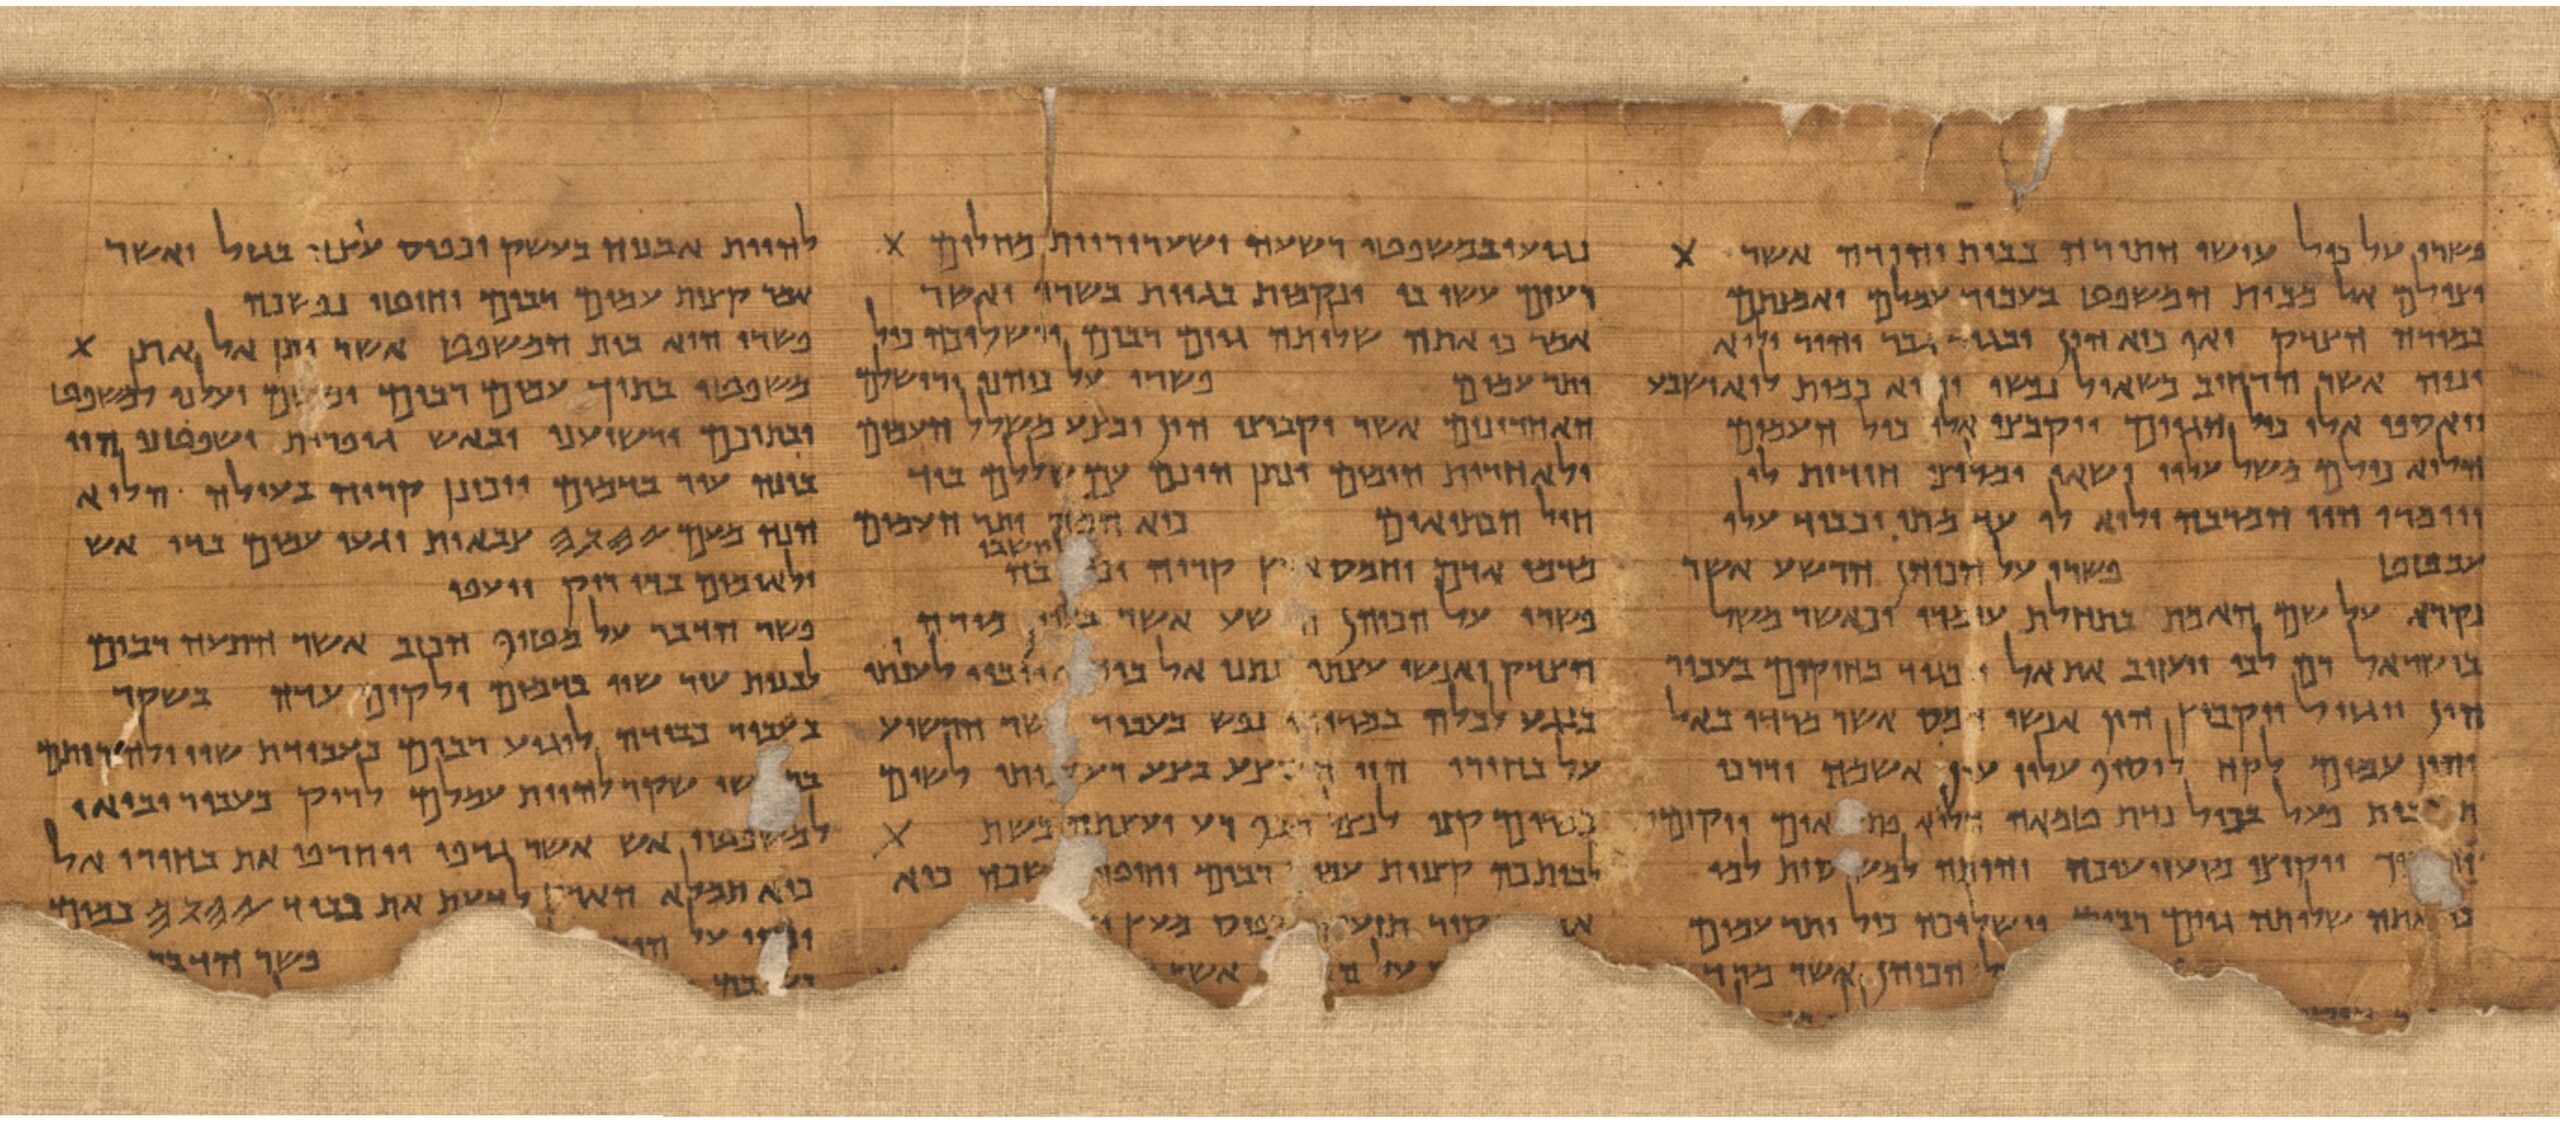 פשרו על כול עושי התורה בבית יהודה אשר X
יצילם אל מבית המשפט בעבור עמלם ואמנתם
במורה הצדק ואף כיא הון יבגוד גבר יהיר ולוא
ינוה אשר הרחיב כשאול נפשו והוא כמות לוא ישבע
ויאספו אלו כול הגוים ויקבצו אלו כול העמים
הלוא כולם משל עליו ישאו ומליצי חידות לו
ויומרו הוי המרבה ולוא לו עד מתי יכביד עלו
עבטט פשרו על הכוהן הרשע אשר
נקרא על שם האמת בתחלת עומדו וכאשר משל
בישראל רם לבו ויעזוב את אל ויבגוד בחוקים בעבור
הון ויגזול ויקבוץ הון אנשי חמס אשר מרדו באל
והון עמים לקח לוסיף עליו עון אשמה ודרכי
פעל בכול נדת טמאה הלוא ויקומו
ויקיצו מזעזיעיכה והיתה למו
אתה שלותה גוים רבים וישלוכה כול יתר עמים
הכוהן אשר מרד
נגועו במשפטי רשעה ושערוריות מחלים X
רעים עשו בו ונקמות בגוית בשרו ואשר
אמר כי אתה שלותה גוים רבים וישלוכה כול
יתר עמים פשרו על כוהני ירושלם
האחרונים אשר יקבוצו הון ובצע משלל העמים
ולאחרית הימים ינתן הונם עם שללם ביד
חיל הכתיאים כיא המה יתר העמים
מדמי אדם וחמס קריה יושבי בה
פשרו על הכוהן אשר מורה
הצדק ואנשי עצתו נתנו אל לענותו
בנגע לכלה נפש בעבור הרשיע
על בחירו הוי בצע רע לשום
במרום קנו מכף רע יעצתה בשת X
לביתכה קצוות רבים וחוטי כיא
תזעק מעץ
על אשר
להיות אבניה בעשק וכפיס עיצו בגזל ואשר
אמר קצות עמים רבים וחוטי נפשכה
פשרו הוא בית המשפט אשר יתן אל את X
משפטו בתוך עמים רבים ומשם יעלנו למשפט
ובתוכם ירשיענו ובאש גופרית ישפטנו הוי
בונה עיר בדמים ויכונן קריה בעולה הלוא
הנה מעם 𐤉𐤄𐤅𐤄 צבאות יגעו עמים בדי אש
ולאומים בדי ריק ייעפו
פשר הדבר על מטיף הכזב אשר התעה רבים
לבנות עיר שוו בדמים ולקים עדה בשקר
בעבור כבודה לוגיע רבים בעבודת שוו ולהרותם
שקר להיות עמלם לריק בעבור יבואו
למשפטי אש אשר גדפו ויחרפו את בחירי אל
כיא תמלא הארץ לדעת את כבוד 𐤉𐤄𐤅𐤄 כמים
על פשר הדבר